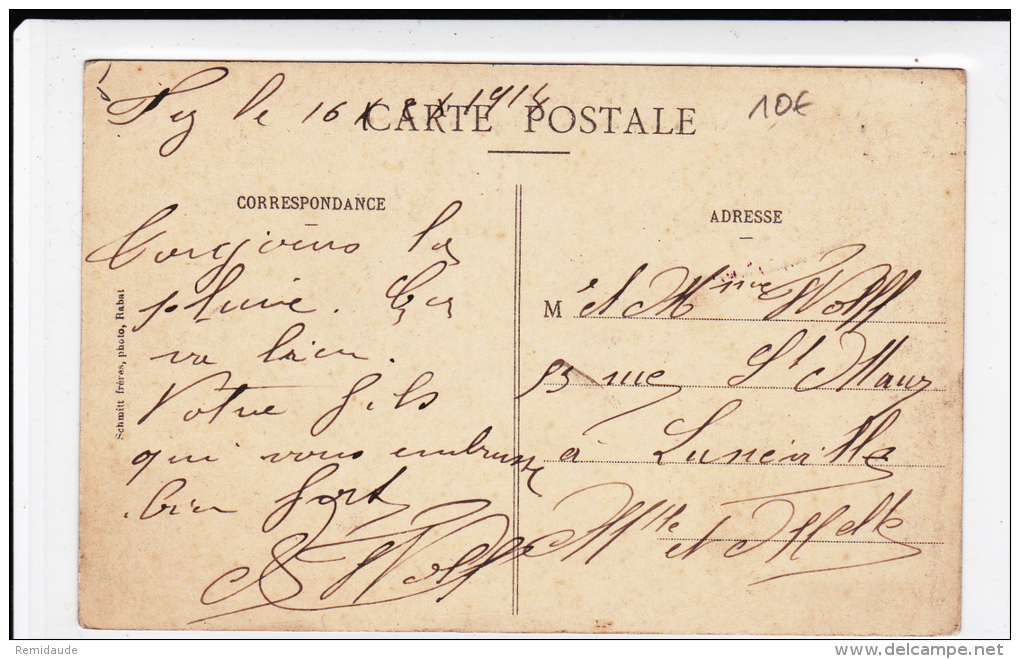 Fez le 16 X 1918
CARTE POSTALE
10€
CORRESPONDANCE
Toujours la
pluie. Ca
va bien.
Votre fils
qui vous embrasse
bien fort
Wolff
Schmitt frères, photo, Rabat
ADRESSE
M r et Mme Wolff
93 rue St Maur
à Lunéville
Mthe et Melle
Remidaude
www.delcampe.net